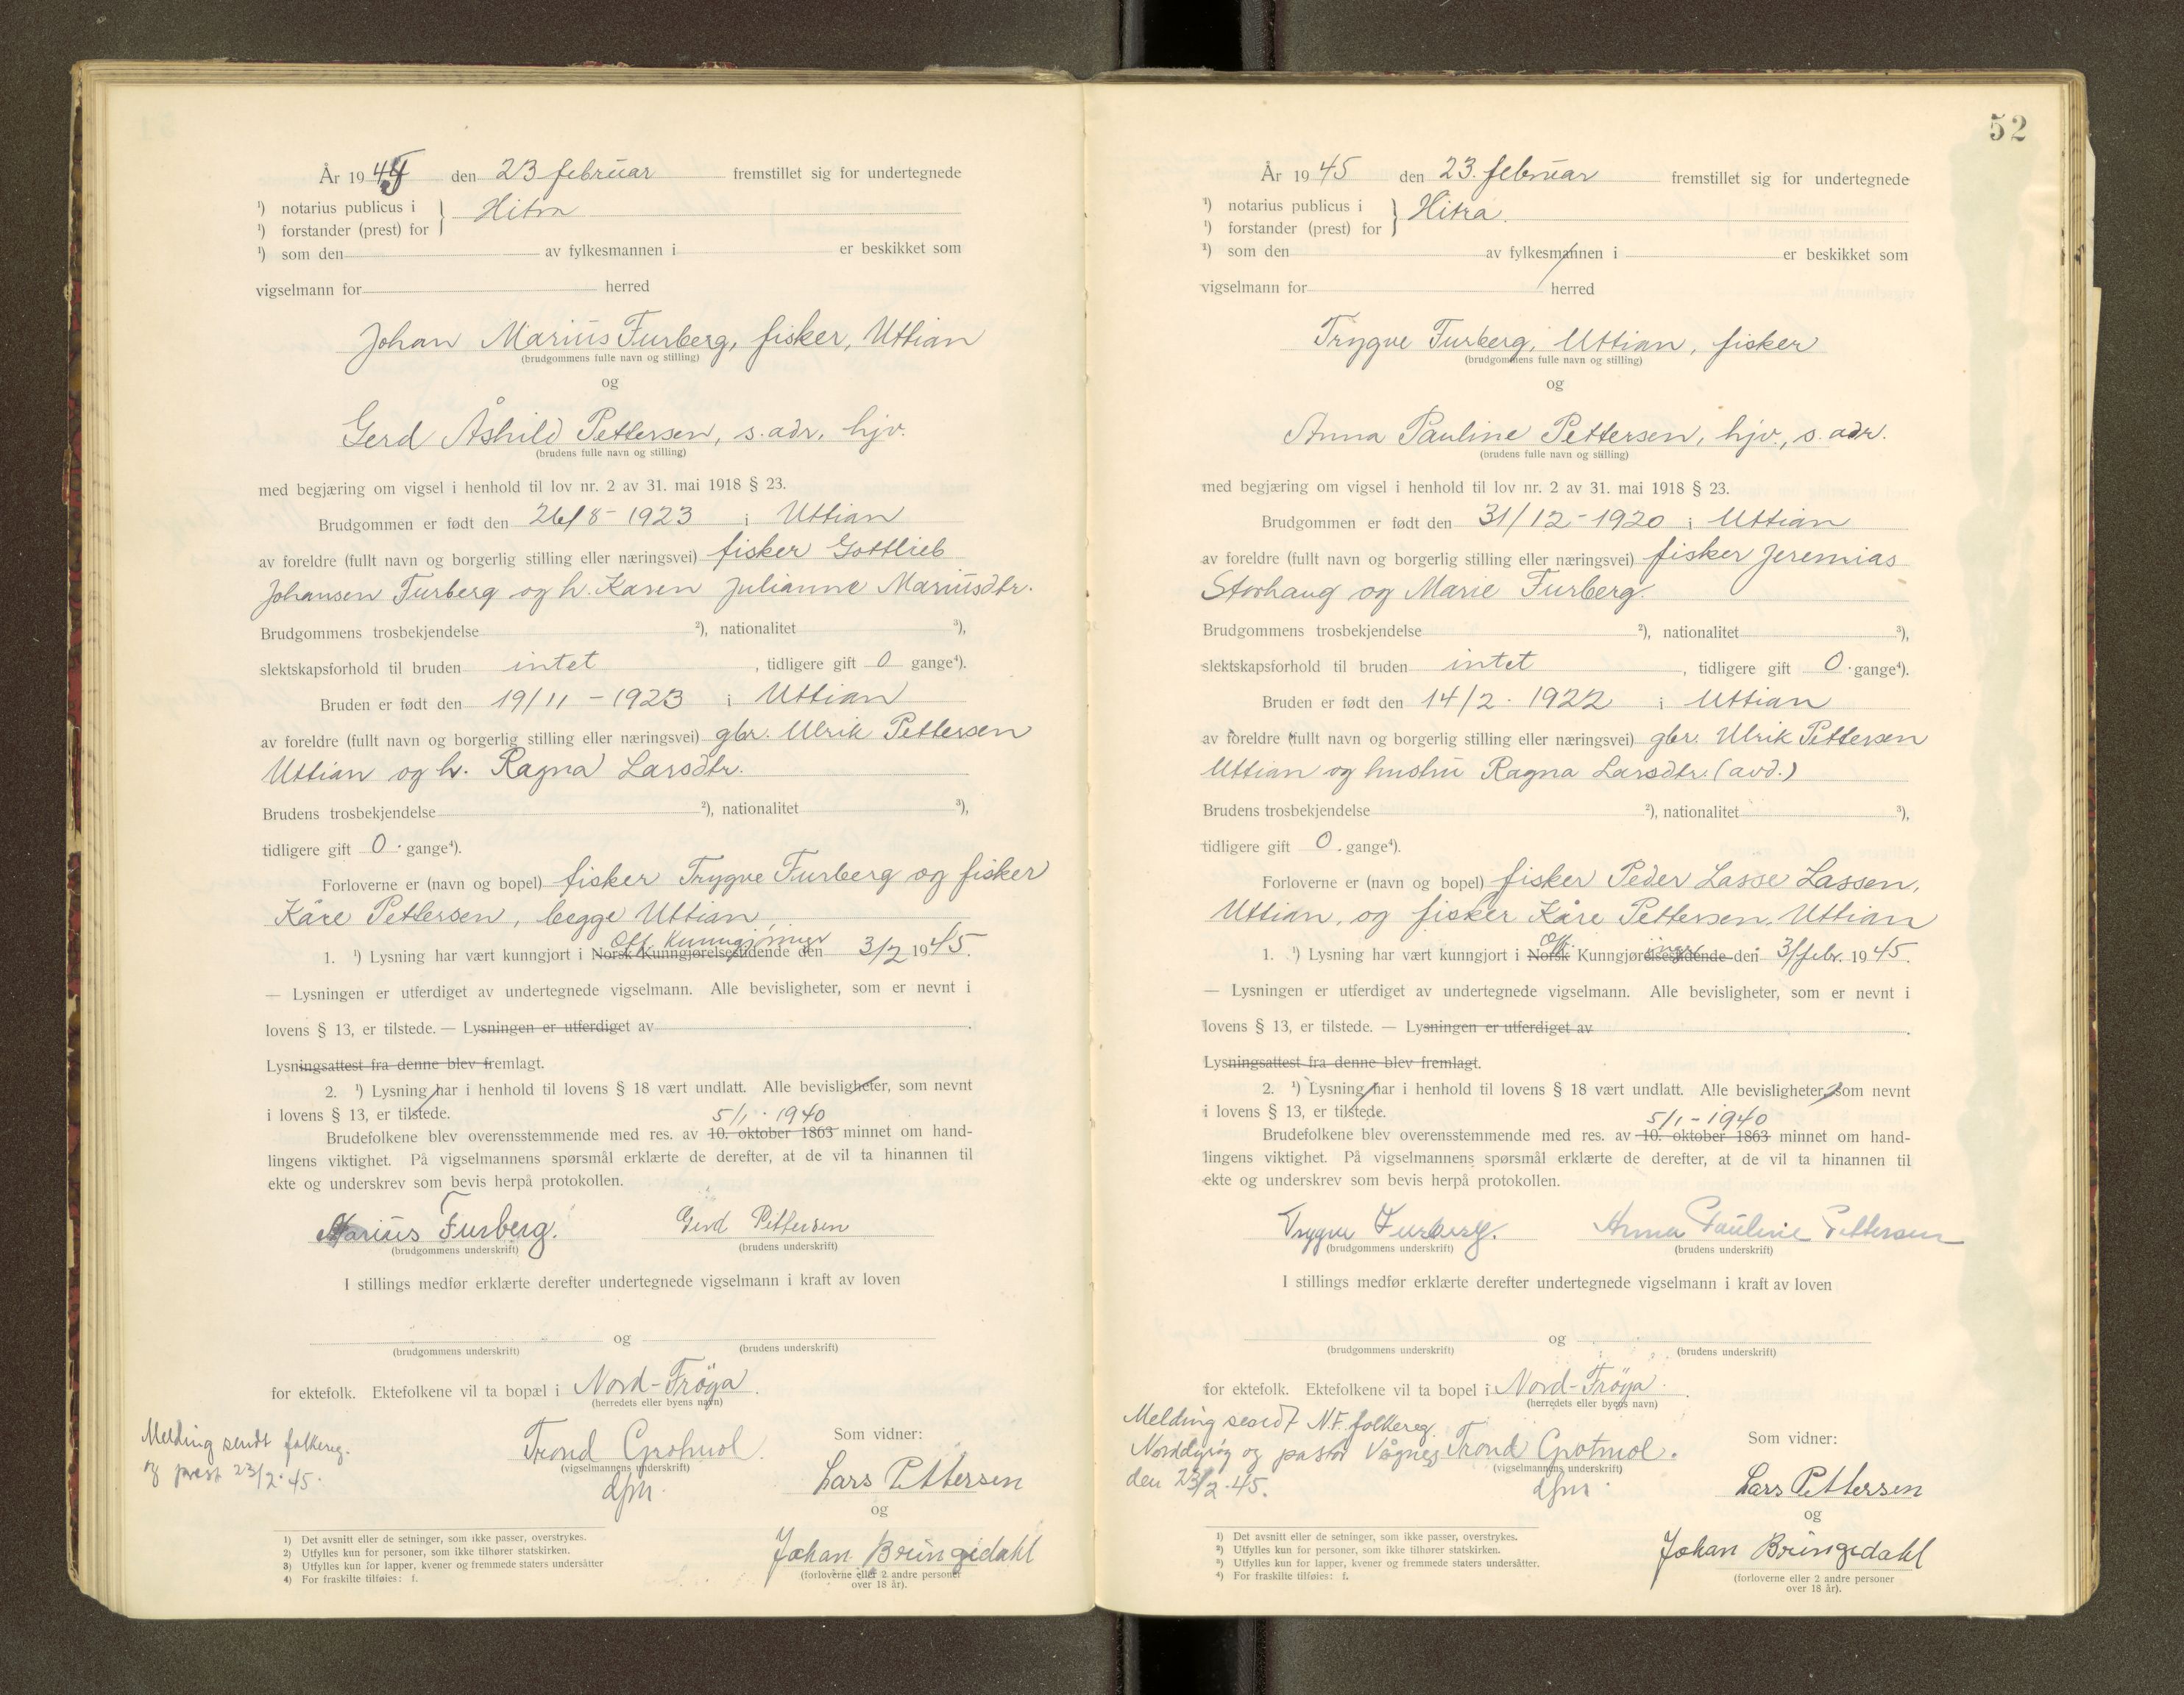 År 1945 den 23 februar fremstillet sig for undertegnede
¹) notarius publicus i } Hitra
¹) forstander (prest) for
¹) som den av fylkesmannen i er beskikket som
vigselmann for herred
Johan Marius Furberg, fisker, Uttian
(brudgommens fulle navn og stilling)
og
Gerd Åshild Pettersen, s. adr. hjv.
(brudens fulle navn og stilling)
med begjæring om vigsel i henhold til lov nr. 2 av 31. mai 1918 § 23.
Brudgommen er født den 26/8 - 1923 i Uttian
av foreldre (fullt navn og borgerlig stilling eller næringsvei) fisker Gottlieb
Johansen Furberg og h. Karen Julianne Mariusdtr.
Brudgommens trosbekjendelse ²), nationalitet ³),
slektskapsforhold til bruden intet , tidligere gift 0 gange⁴).
Bruden er født den 19/11 - 1923 i Uttian
av foreldre (fullt navn og borgerlig stilling eller næringsvei) gbr. Ulrik Pettersen
Uttian og h. Ragna Larsdtr.
Brudens trosbekjendelse ²), nationalitet ³),
tidligere gift 0 · gange⁴).
Forloverne er (navn og bopel) fisker Trygve Furberg og fisker
Kåre Pettersen, begge Uttian
Off. Kunngjøringer
1. ¹) Lysning har vært kunngjort i Norsk Kunngjørelsestidende den 3/2 1945.
— Lysningen er utferdiget av undertegnede vigselmann. Alle bevisligheter, som er nevnt i
lovens § 13, er tilstede. — Lysningen er utferdiget av .
Lysningsattest fra denne blev fremlagt.
2. ¹) Lysning har i henhold til lovens § 18 vært undlatt. Alle bevisligheter, som nevnt
i lovens § 13, er tilstede.
5/1 · 1940
Brudefolkene blev overensstemmende med res. av 10. oktober 1863 minnet om hand-
lingens viktighet. På vigselmannens spørsmål erklærte de derefter, at de vil ta hinannen til
ekte og underskrev som bevis herpå protokollen.
Marius Furberg. Gerd Pettersen
(brudgommens underskrift) (brudens underskrift)
I stillings medfør erklærte derefter undertegnede vigselmann i kraft av loven
og
(brudgommens underskrift) (brudens underskrift)
for ektefolk. Ektefolkene vil ta bopæl i Nord-Fröya.
(herredets eller byens navn)
Melding sendt folkereg.
og prest 23/2 · 45.
Trond Grotmol.
(vigselmannens underskrift)
Som vidner:
Lars Pettersen
og
Johan Bringedahl
(forloverne eller 2 andre personer
over 18 år).
1) Det avsnitt eller de setninger, som ikke passer, overstrykes.
2) Utfylles kun for personer, som ikke tilhører statskirken.
3) Utfylles kun for lapper, kvener og fremmede staters undersåtter
4) For fraskilte tilføies: f.
52
År 1945 den 23. februar fremstillet sig for undertegnede
¹) notarius publicus i } Hitra.
¹) forstander (prest) for
¹) som den av fylkesmannen i er beskikket som
vigselmann for herred
Trygve Furberg, Uttian, fisker
(brudgommens fulle navn og stilling)
og
Anna Pauline Pettersen, hjv., s. adr.
(brudens fulle navn og stilling)
med begjæring om vigsel i henhold til lov nr. 2 av 31. mai 1918 § 23.
Brudgommen er født den 31/12 - 1920 i Uttian
av foreldre (fullt navn og borgerlig stilling eller næringsvei) fisker Jeremias
Storhaug og Marie Furberg.
Brudgommens trosbekjendelse ²), nationalitet ³),
slektskapsforhold til bruden intet , tidligere gift 0 · gange⁴).
Bruden er født den 14/2 · 1922 i Uttian
av foreldre (fullt navn og borgerlig stilling eller næringsvei) gbr. Ulrik Pettersen
Uttian og hustru Ragna Larsdtr. (avd.)
Brudens trosbekjendelse ²), nationalitet ³),
tidligere gift 0 . gange⁴).
Forloverne er (navn og bopel) fisker Peder Lasse Lassen,
Uttian, og fisker Kåre Pettersen, Uttian
Off. inger
1. ¹) Lysning har vært kunngjort i Norsk Kunngjørelsestidende den 3/febr. 1945.
— Lysningen er utferdiget av undertegnede vigselmann. Alle bevisligheter, som er nevnt i
lovens § 13, er tilstede. — Lysningen er utferdiget av .
Lysningsattest fra denne blev fremlagt.
2. ¹) Lysning har i henhold til lovens § 18 vært undlatt. Alle bevisligheter, som nevnt
i lovens § 13, er tilstede.
5/1 - 1940
Brudefolkene blev overensstemmende med res. av 10. oktober 1863 minnet om hand-
lingens viktighet. På vigselmannens spørsmål erklærte de derefter, at de vil ta hinannen til
ekte og underskrev som bevis herpå protokollen.
Trygve Furberg. Anna Pauline Pettersen
(brudgommens underskrift) (brudens underskrift)
I stillings medfør erklærte derefter undertegnede vigselmann i kraft av loven
og
(brudgommens underskrift) (brudens underskrift)
for ektefolk. Ektefolkene vil ta bopel i Nord-Fröya.
(herredets eller byens navn)
Melding sendt N.F. folkereg.
Norddyrøy og pastor Vågnes
den 23/2 · 45.
Trond Grotmol.
(vigselmannens underskrift)
Som vidner:
Lars Pettersen
og
Johan Bringedahl
(forloverne eller 2 andre personer
over 18 år).
1) Det avsnitt eller de setninger, som ikke passer, overstrykes.
2) Utfylles kun for personer, som ikke tilhører statskirken.
3) Utfylles kun for lapper, kvener og fremmede staters undersåtter.
4) For fraskilte tilføies: f.